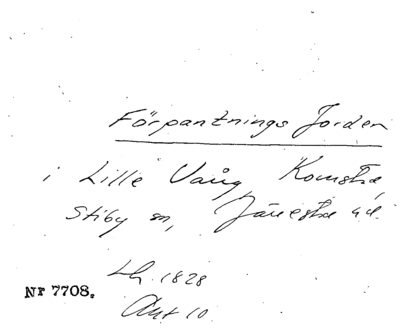 Förpantnings Jorden
i Lille Vång Komsta,
Stiby sn, Järrestad
Lh. 1828
Akt 10
Nr 7708.